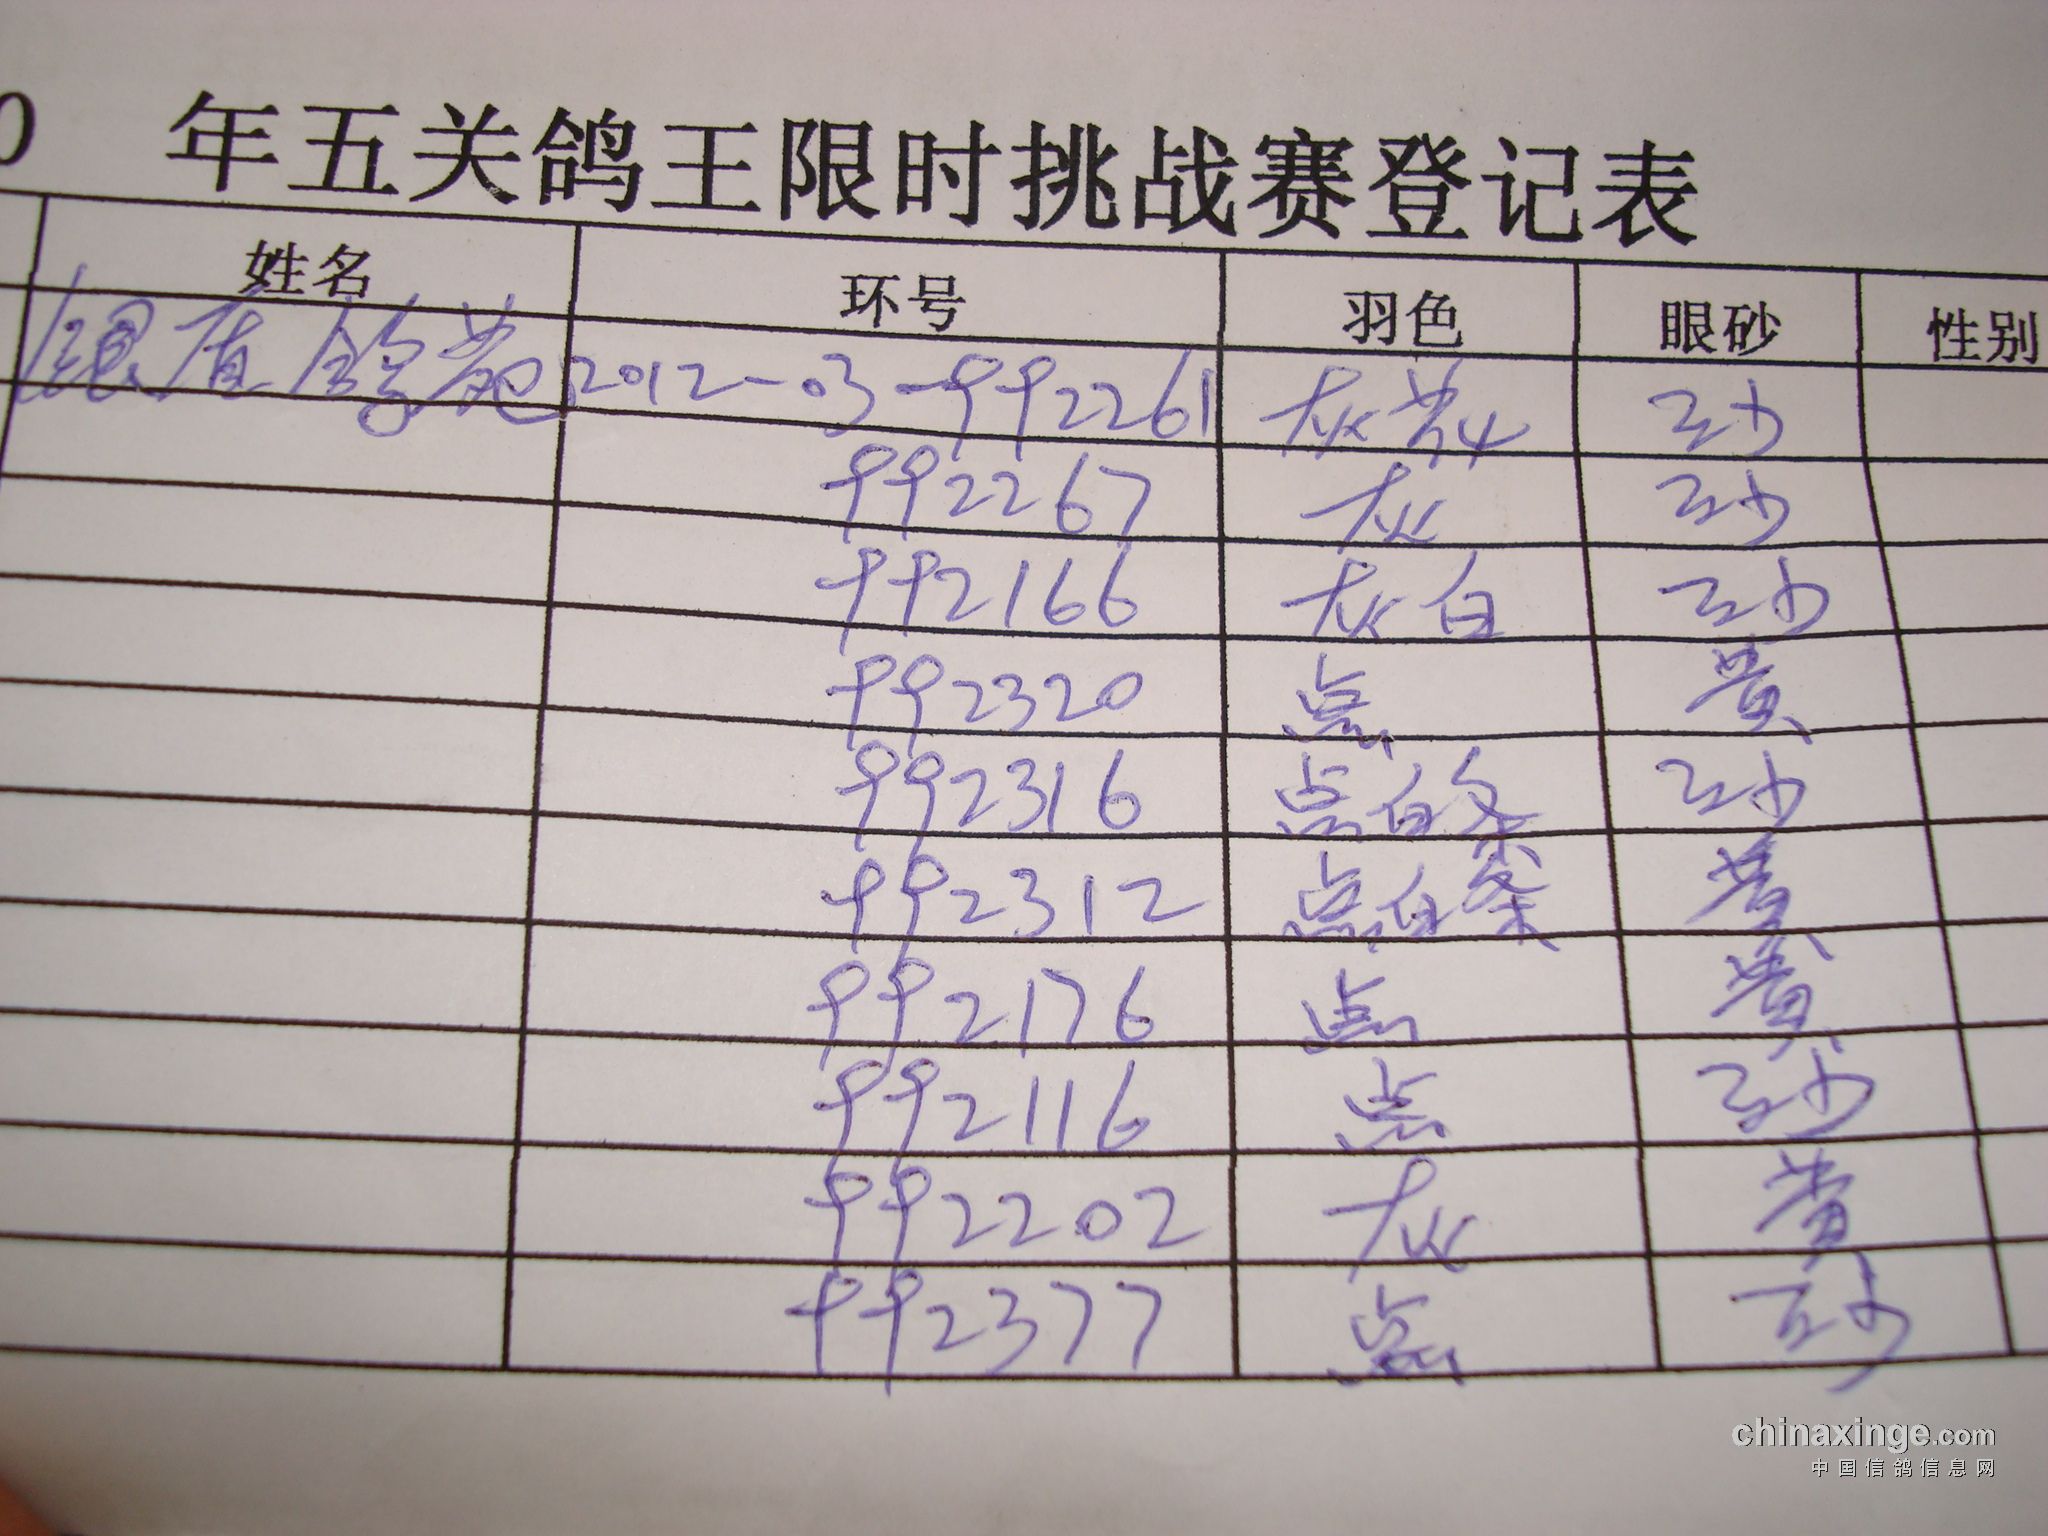 0 年五关鸽王限时挑战赛登记表
姓名 环号 羽色 眼砂 性别
银盾鸽苑 2012-03-992261 灰花 砂
992267 灰 砂
992166 灰白 砂
992320 点 黄
992316 点白条 砂
992312 点白条 黄
992176 点 黄
992116 点 砂
992202 灰 黄
992377 点 砂
chinaxinge.com
中国信鸽信息网